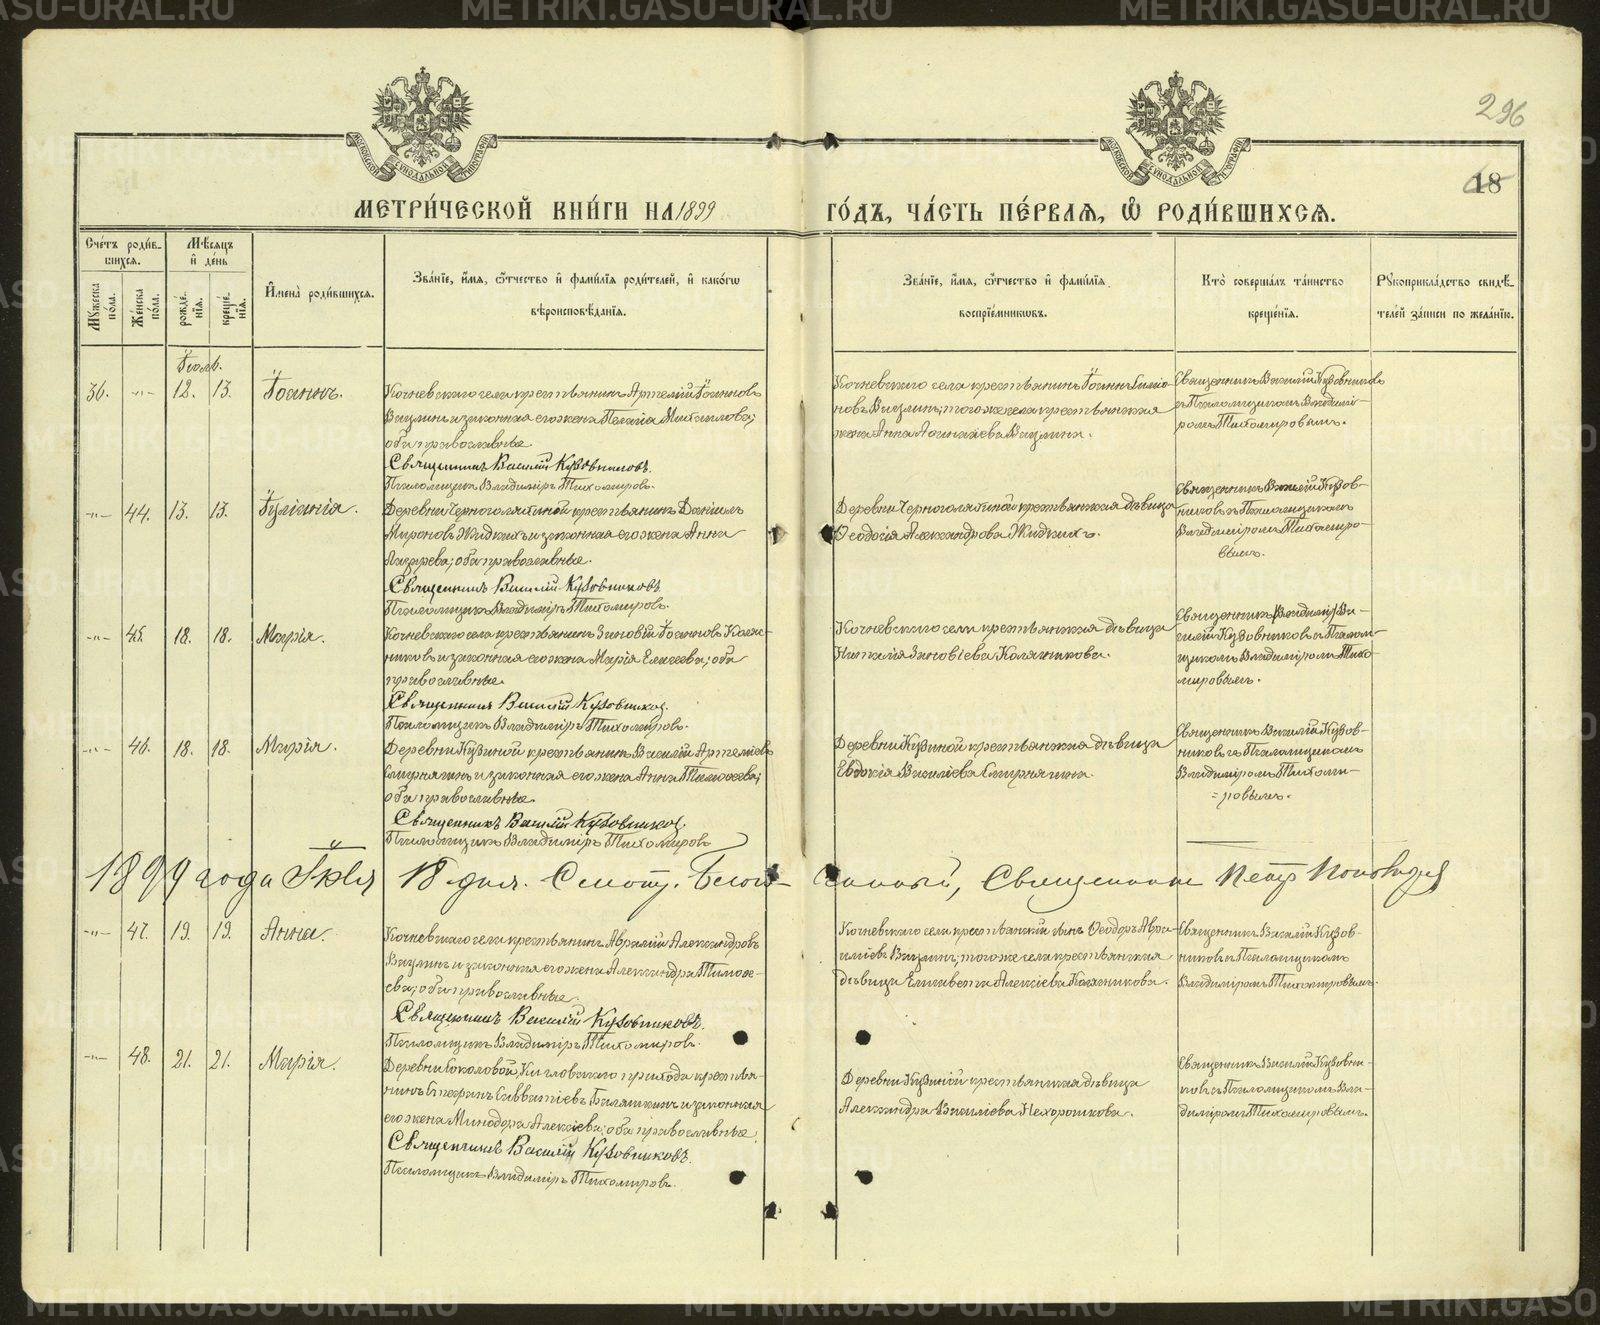 METRIKI.GASU-URAL.RU
296
МОСКОВСКОЙ СѴНОДАЛЬНОЙ ТИПОГРАФІИ
МОСКОВСКОЙ СѴНОДАЛЬНОЙ ТИПОГРАФІИ
18
МЕТРИ́ЧЕСКОЙ КНИ́ГИ НА 1899
ГО́ДЪ, ЧА́СТЬ ПЕ́РВАѦ, Ѡ҆ РОДИ́ВШИХСѦ.
Сче́тъ роди́в-
шихсѧ.
Мꙋ́жеска по́ла.
Же́нска по́ла.
Мѣ́сѧцъ
и҆ де́нь
рожде́нїѧ.
креще́нїѧ.
И҆мена̀ роди́вшихсѧ.
Зва́нїе, и҆́мѧ, ѻ҆́тчество и҆ фами́лїѧ роди́телей, и҆ како́гѡ
вѣроисповѣ́данїѧ.
Зва́нїе, и҆́мѧ, ѻ҆́тчество и҆ фами́лїѧ
воспрїе́мникѡвъ.
Кто̀ соверша́лъ та́инство
креще́нїѧ.
Рꙋкоприкла́дство свидѣ́-
телей за́писи по жела́нїю.
Іюль.
36. -"- 12. 13. Іоаннъ.
Кочневскаго села крестьянинъ Артемій Іоанновъ
Вяулинъ и законная его жена Пелагія Михаилова;
оба православные.
Священникъ Василій Кузовниковъ.
Псаломщикъ Владиміръ Тихомировъ.
Кочневскаго села крестьянинъ Іоаннъ Симео-
новъ Вяулинъ; того же села крестьянская
жена Анна Вяулина.
Священникъ Василій Кузовниковъ
съ Псаломщикомъ Владимі-
ромъ Тихомировымъ.
-"- 44. 13. 13. Іуліанія.
Деревни Черноголятиной крестьянинъ Даніилъ
Мироновъ Жидкихъ и законная его жена Анна
Лазарева; оба православные.
Священникъ Василій Кузовниковъ
Псаломщикъ Владиміръ Тихомировъ.
Деревни Черноголятиной крестьянская дѣвица
Ѳеодосія Александрова Жидкихъ.
Священникъ Василій Кузов-
никовъ съ Псаломщикомъ
Владиміромъ Тихомиро-
вымъ.
-"- 45. 18. 18. Марія.
Кочневскаго села крестьянинъ Зиновій Іоанновъ Коляс-
никовъ и законная его жена Марія Елисеева; оба
православные.
Священникъ Василій Кузовниковъ.
Псаломщикъ Владиміръ Тихомировъ.
Кочневскаго села крестьянская дѣвица
Наталія Зиновіева Колясникова.
Священникъ Ва-
силій Кузовниковъ съ Псалом-
щикомъ Владиміромъ Тихо-
мировымъ.
-"- 46. 18. 18. Марія.
Деревни Кузиной крестьянинъ Василій Артеміевъ
Смирнягинъ и законная его жена Анна Тимоѳеева;
оба православные.
Священникъ Василій Кузовниковъ.
Псаломщикъ Владиміръ Тихомировъ
Деревни Кузиной крестьянская дѣвица
Евдокія Василіева Смирнягина.
Священникъ Василій Кузов-
никовъ съ Псаломщикомъ
Владиміромъ Тихоми-
=ровымъ.
1899 года Іюля 18 дня. Смотр. Благо-
чинный, Священникъ Петръ
-"- 47. 19. 19. Анна.
Кочневскаго села крестьянинъ Авраамій Александровъ
Вяулинъ и законная его жена Александра Тимоѳе-
ева; оба православные.
Священникъ Василій Кузовниковъ.
Псаломщикъ Владиміръ Тихомировъ.
Кочневскаго села крестьянскій сынъ Ѳеодоръ Авра-
аміевъ Вяулинъ; того же села крестьянская
дѣвица Елисавета Алексіева Колясникова.
Священникъ Василій Кузов-
никовъ съ Псаломщикомъ
Владиміромъ Тихомировымъ.
-"- 48. 21. 21. Марія.
Деревни Соколовой, Кисловскаго прихода крестья-
нинъ Стефанъ Савватіевъ и законная
его жена Минодора Алексіева; оба православные.
Священникъ Василій Кузовниковъ.
Псаломщикъ Владиміръ Тихомировъ.
Деревни Кузиной крестьянская дѣвица
Александра Василіева Нехорошкова.
Священникъ Василій Кузовни-
ковъ съ Псаломщикомъ Вла-
диміромъ Тихомировымъ.